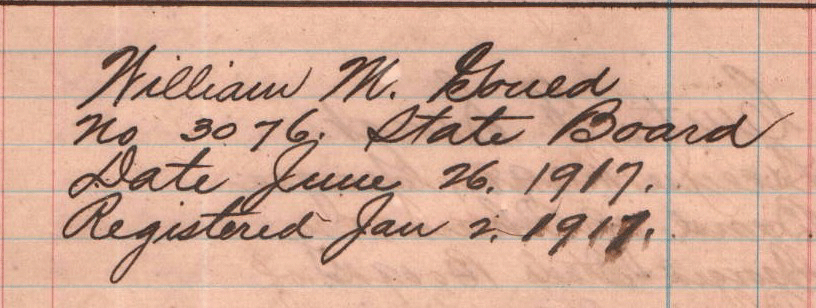 William M. Gould
No 3076. State Board
Date June 26. 1917.
Registered Jan 2. 1917.